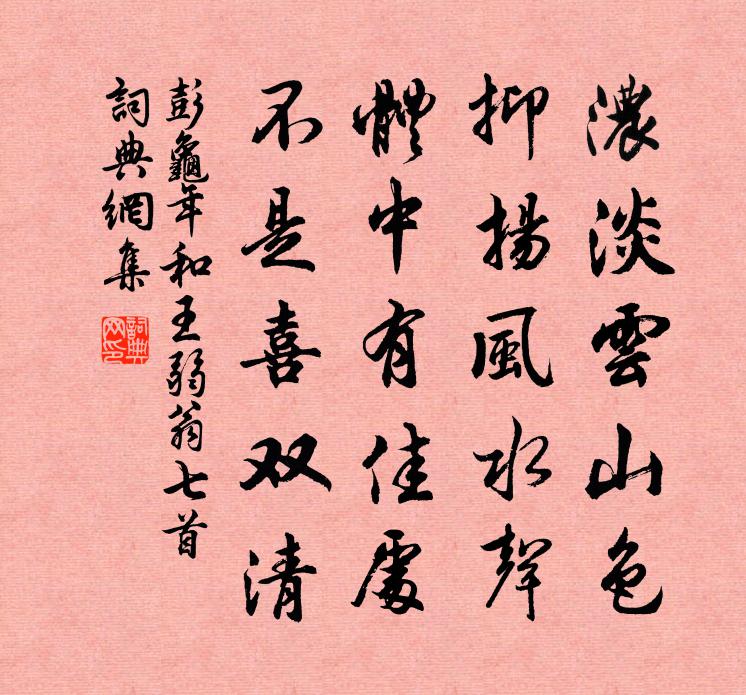 濃淡雲山色
抑揚風水聲
體中有佳處
不是喜双清
彭龜年和王弱翁七首
詞典網集
詞典網印